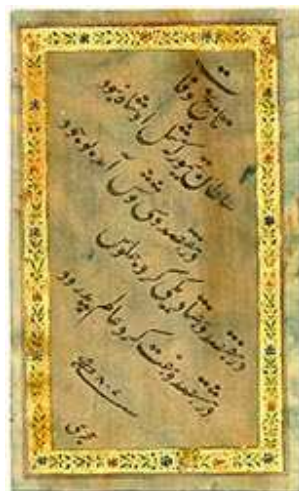 تاریخ وفات
سلطان تیمور که مثل او شاه نبود
در هفتصد و سی و شش آمد بوجود
در هفتصد و هفتاد و یکی کرد جلوس
در هشتصد و هفت کرد عالم پدرود
سنه ۸۰۷
هجری